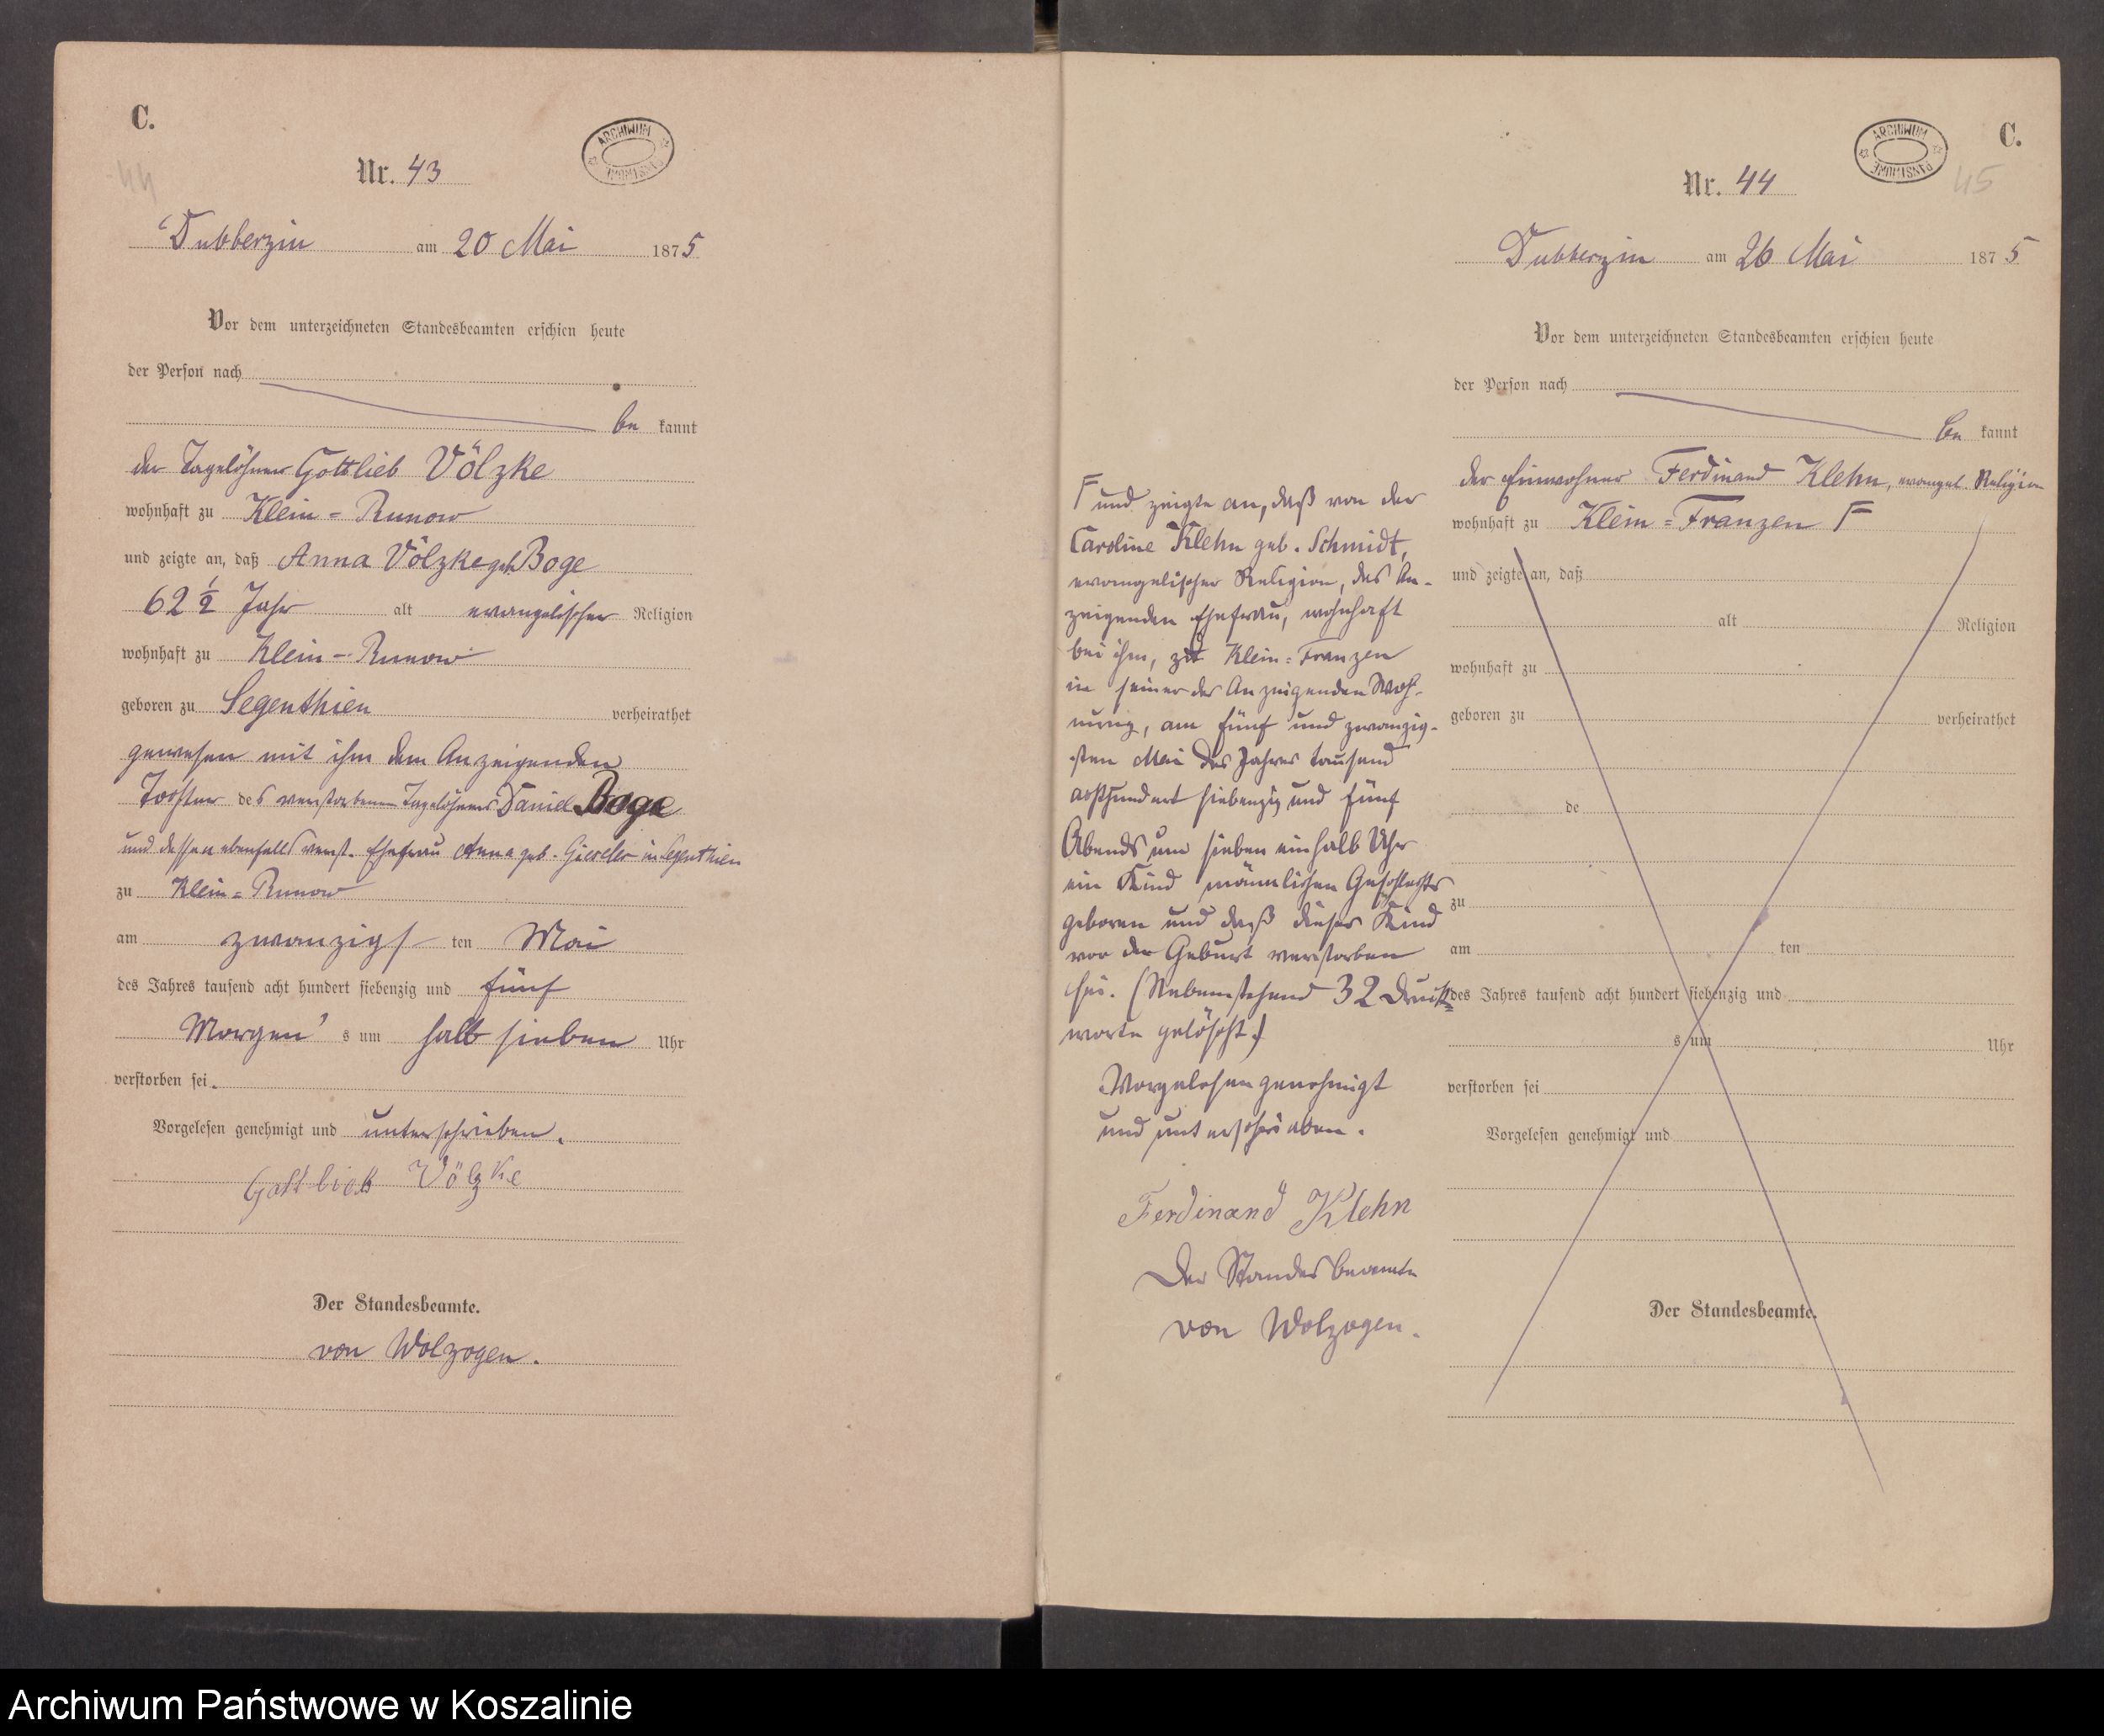 C.
ARCHIWUM PAŃSTWOWE
44
Nr. 43
Dubberzin am 20 Mai 1875
Vor dem unterzeichneten Standesbeamten erschien heute
der Person nach
be kannt
der Tagelöhner Gottlieb Völzke
wohnhaft zu Klein-Runow
und zeigte an, daß Anna Völzke geb. Boge
62 1/2 Jahr alt evangelischer Religion
wohnhaft zu Klein-Runow
geboren zu Segenthien verheirathet
gewesen mit ihm dem Anzeigenden
Tochter des verstorbenen Tagelöhners Daniel Boge
und dessen ebenfalls verst. Ehefrau Anna geb. in Segenthien
zu Klein=Runow
am zwanzigs ten Mai
des Jahres tausend acht hundert siebenzig und fünf
Morgen's um halb sieben Uhr
verstorben sei.
Vorgelesen genehmigt und unterschrieben.
Gottlieb Völzke
Der Standesbeamte.
von Wolzogen.
C.
ARCHIWUM PAŃSTWOWE
45
Nr. 44
Dubberzin am 26 Mai 1875
Vor dem unterzeichneten Standesbeamten erschien heute
der Person nach
be kannt
der Einwohner Ferdinand Klehn, evangel. Religion
wohnhaft zu Klein=Franzen F
F und zeigte an, daß von der
Caroline Klehn geb. Schmidt,
evangelischer Religion, des An-
zeigenden Ehefrau, wohnhaft
bei ihm, zu Klein=Franzen
in seiner des Anzeigenden Woh-
nung, am fünf und zwanzig-
sten Mai des Jahres tausend
achthundert siebenzig und fünf
Abends um sieben einhalb Uhr
ein Kind männlichen Geschlechts
geboren und daß dieses Kind
vor der Geburt verstorben
sei. (Nebenstehend 32 Druck=
worte gelöscht.)
Vorgelesen genehmigt
und unterschrieben.
Ferdinand Klehn
Der Standesbeamte
von Wolzogen.
und zeigte an, daß
alt Religion
wohnhaft zu
geboren zu verheirathet
de
zu
am ten
des Jahres tausend acht hundert siebenzig und
s um Uhr
verstorben sei
Vorgelesen genehmigt und
Der Standesbeamte.
Archiwum Państwowe w Koszalinie